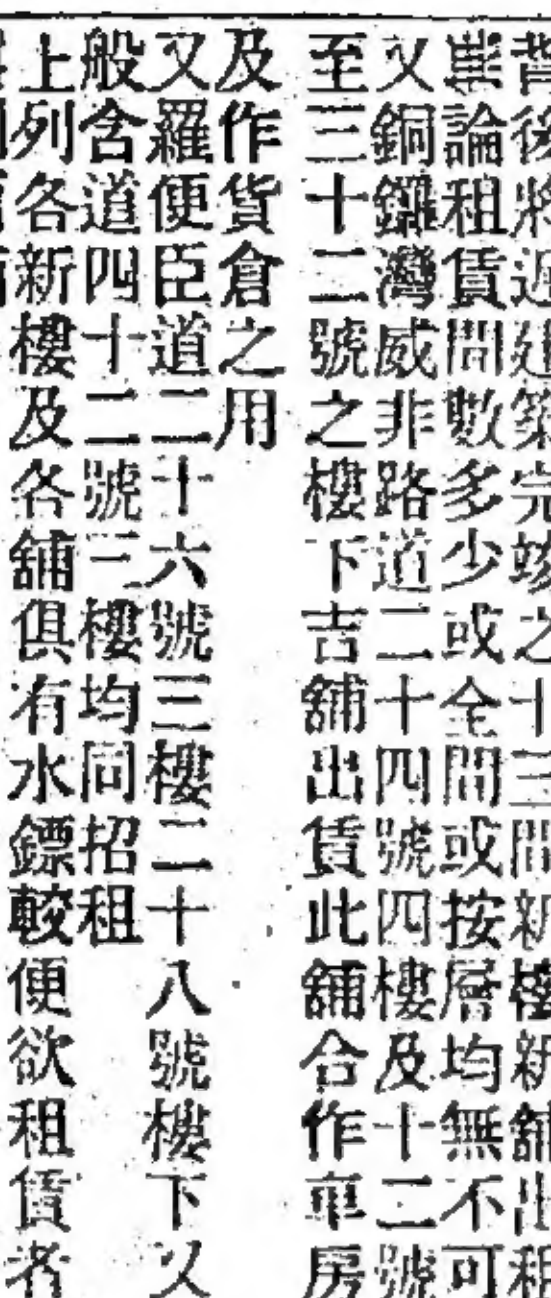 背後將近建築完竣之十三間新樓新舖出租
論租賃間數多少或全間或按層均無不可
又銅鑼灣威非路道二十四號四樓及十二號
至三十二號之樓下吉舖出賃此舖合作車房
及作貨倉之用
又羅便臣道二十六號三樓二十八號樓下又
般含道四十二號三樓均同招租
上列各新樓及各舖俱有水鏢較便欲租賃者